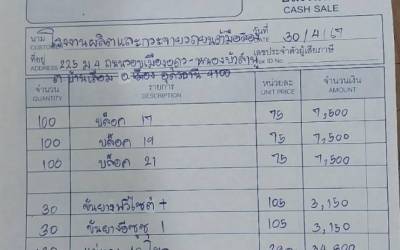 CASH SALE
นาม โรงงานผลิตและกระจายวัตถุ วันที่ 30/4/67
CUSTOMER
ที่อยู่ 225 ม.4 ถนนรอบเมืองอุดร-หนองบัวลำภู เลขประจำตัวผู้เสียภาษี
ADDRESS ต.บ้านเลื่อม อ.เมือง อุดรธานี 4100
จำนวน รายการ หน่วยละ จำนวนเงิน
QUANTITY DESCRIPTION UNIT PRICE AMOUNT
100 บล็อค 17 75 7,500
100 บล็อค 19 75 7,500
100 บล็อค 21 75 7,500
30 ขันยาง + 105 3,150
30 ขันยางอีซูซุ 1 105 3,150